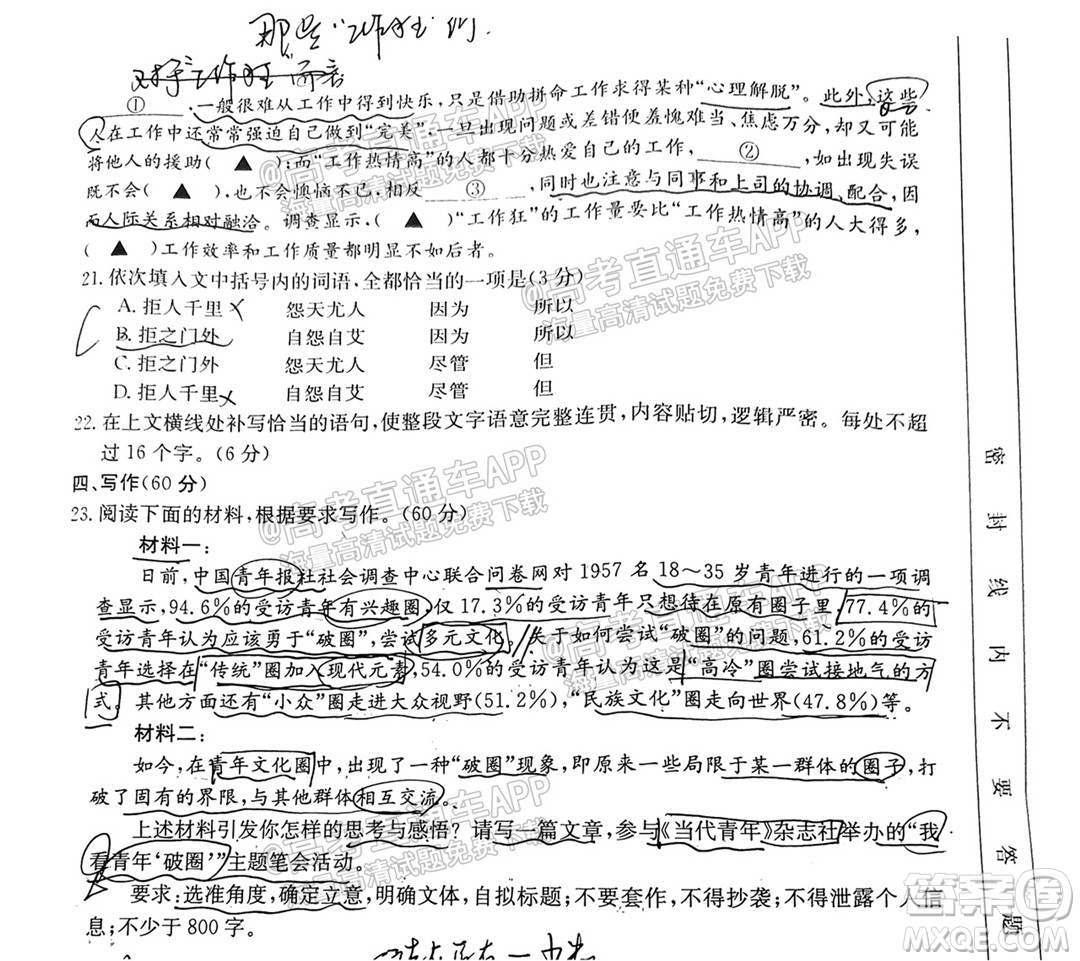 那是“工作狂”们
对于“工作狂”而言
①,一般很难从工作中得到快乐,只是借助拼命工作求得某种“心理解脱”。此外,这些
人在工作中还常常强迫自己做到“完美”,一旦出现问题或差错便羞愧难当、焦虑万分,却又可能
将他人的援助( ▲ );而“工作热情高”的人都十分热爱自己的工作,②,如出现失误
既不会( ▲ ),也不会懊恼不已,相反③,同时也注意与同事和上司的协调、配合,因
而人际关系相对融洽。调查显示,( ▲ )“工作狂”的工作量要比“工作热情高”的人大得多,
( ▲ )工作效率和工作质量都明显不如后者。
21.依次填入文中括号内的词语,全都恰当的一项是(3分)
A.拒人千里 怨天尤人 因为 所以
B.拒之门外 自怨自艾 因为 所以
C.拒之门外 怨天尤人 尽管 但
D.拒人千里 自怨自艾 尽管 但
22.在上文横线处补写恰当的语句,使整段文字语意完整连贯,内容贴切,逻辑严密。每处不超
过16个字。(6分)
四、写作(60分)
23.阅读下面的材料,根据要求写作。(60分)
材料一:
日前,中国青年报社社会调查中心联合问卷网对1957名18~35岁青年进行的一项调
查显示,94.6%的受访青年有兴趣圈,仅17.3%的受访青年只想待在原有圈子里,77.4%的
受访青年认为应该勇于“破圈”,尝试多元文化。关于如何尝试“破圈”的问题,61.2%的受访
青年选择在“传统”圈加入现代元素,54.0%的受访青年认为这是“高冷”圈尝试接地气的方
式。其他方面还有“小众”圈走进大众视野(51.2%),“民族文化”圈走向世界(47.8%)等。
材料二:
如今,在青年文化圈中,出现了一种“破圈”现象,即原来一些局限于某一群体的圈子,打
破了固有的界限,与其他群体相互交流。
上述材料引发你怎样的思考与感悟?请写一篇文章,参与《当代青年》杂志社举办的“我
看青年‘破圈’”主题笔会活动。
要求:选准角度,确定立意,明确文体,自拟标题;不要套作,不得抄袭;不得泄露个人信
息;不少于800字。
密封线内不要答题
@高考直通车APP
海量高清试题免费下载
@高考直通车APP
海量高清试题免费下载
@高考直通车APP
海量高清试题免费下载
@高考直通车APP
海量高清试题免费下载
@高考直通车APP
海量高清试题免费下载
答案圈
MXQE.COM